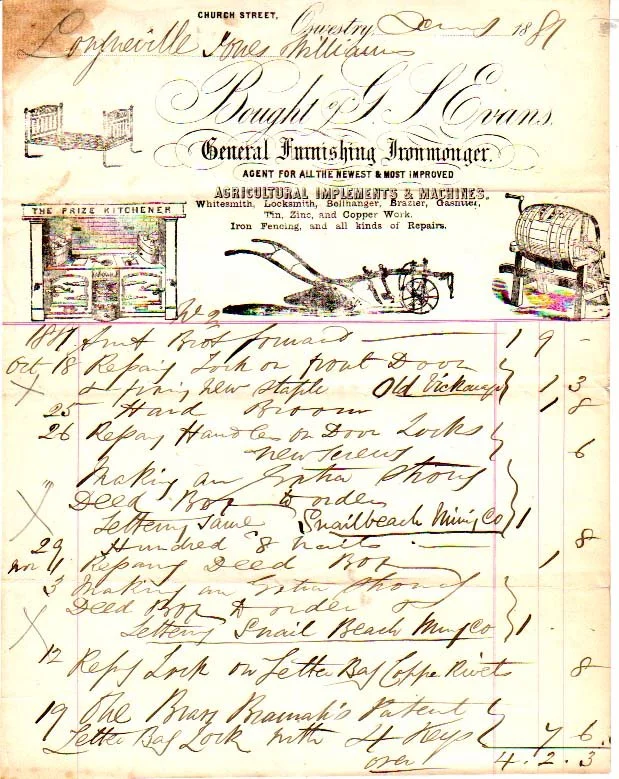 CHURCH STREET,
Oswestry, Jany 1 1889
Longueville Jones Williams
Bought of G S Evans.
General Furnishing Ironmonger.
AGENT FOR ALL THE NEWEST & MOST IMPROVED
AGRICULTURAL IMPLEMENTS & MACHINES.
Whitesmith, Locksmith, Bellhanger, Brazier, Gasfitter,
Tin, Zinc, and Copper Work.
Iron Fencing, and all kinds of Repairs.
THE PRIZE KITCHENER
Amt Brot forward 1 9 -
Oct 18 Repairg Lock on front Door
& fixing new staple Old Vickarage 1 3
25 Hard Broom 1 8
26 Repairg Handles on Door Locks
new screws 6
" Making an Extra Strong
Deed Box to order
Lettering Same Snailbeach Mining Co 1
29 Hundred 8 nails 8
Nov 1 Repairg Deed Box 1
3 Making an Extra Strong
Deed Box to order &
Lettering Snail Beach Ming Co 1 - -
12 Repg Lock on Letter Bag Copper Rivets 8
19 One Brass Bramah's Patent
Letter Bag Lock with 4 Keys 7 6
over 4 . 2 . 3